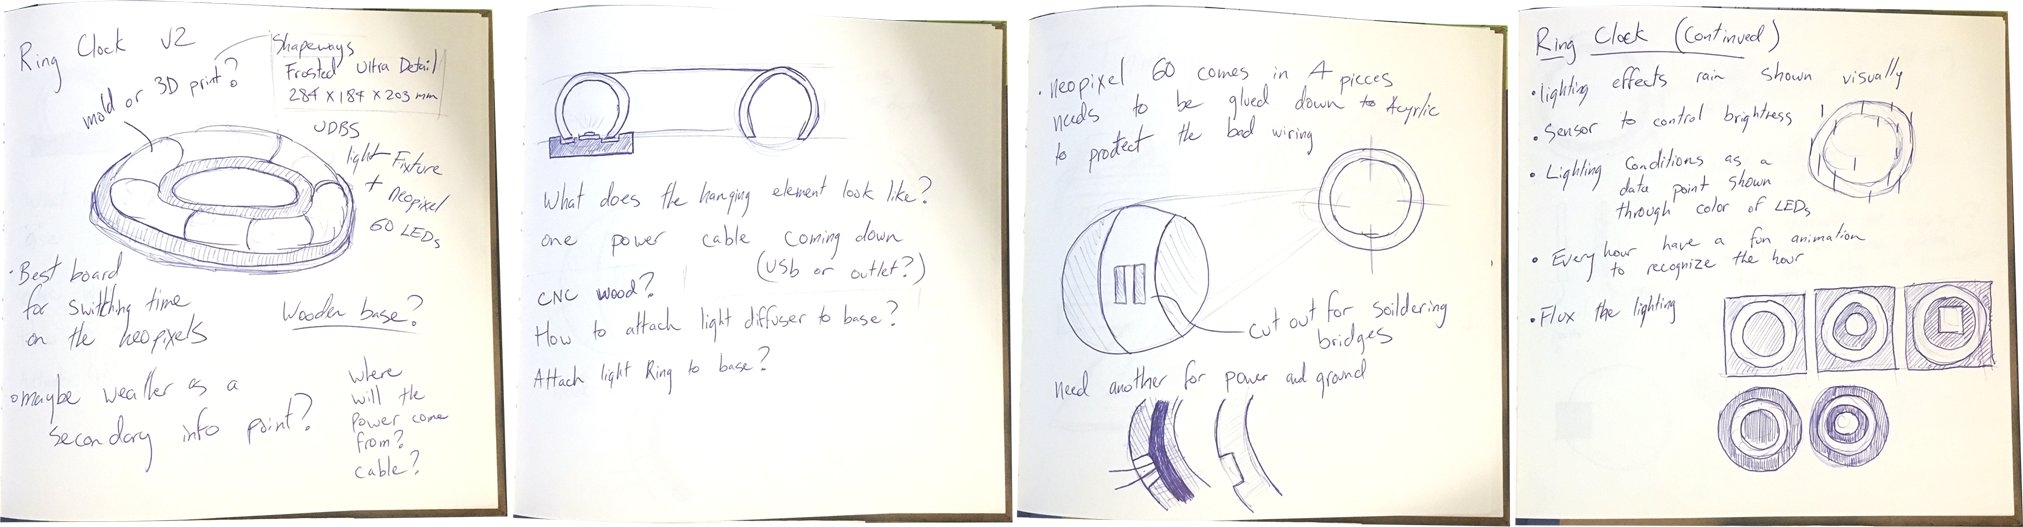 Ring Clock V2
mold or 3D print?
Shapeways
Frosted Ultra Detail
284 x 184 x 203 mm
UDBS
light Fixture
+ neopixel
60 LEDs
• Best board
for switching time
on the neopixels
Wooden base?
• maybe weather as a
secondary info point?
where
will the
Power come
from?
cable?
What does the hanging element look like?
one power cable coming down
(USb or outlet?)
CNC wood?
How to attach light diffuser to base?
Attach light Ring to base?
• neopixel 60 comes in 4 pieces
needs to be glued down to Acyrlic
to protect the bad wiring
cut out for soildering
bridges
need another for power and ground
Ring Clock (continued)
• lighting effects rain shown visually
• Sensor to control brightness
• Lighting Conditions as a
data point shown
through color of LEDs
• Every hour have a fun animation
to recognize the hour
• Flux the lighting